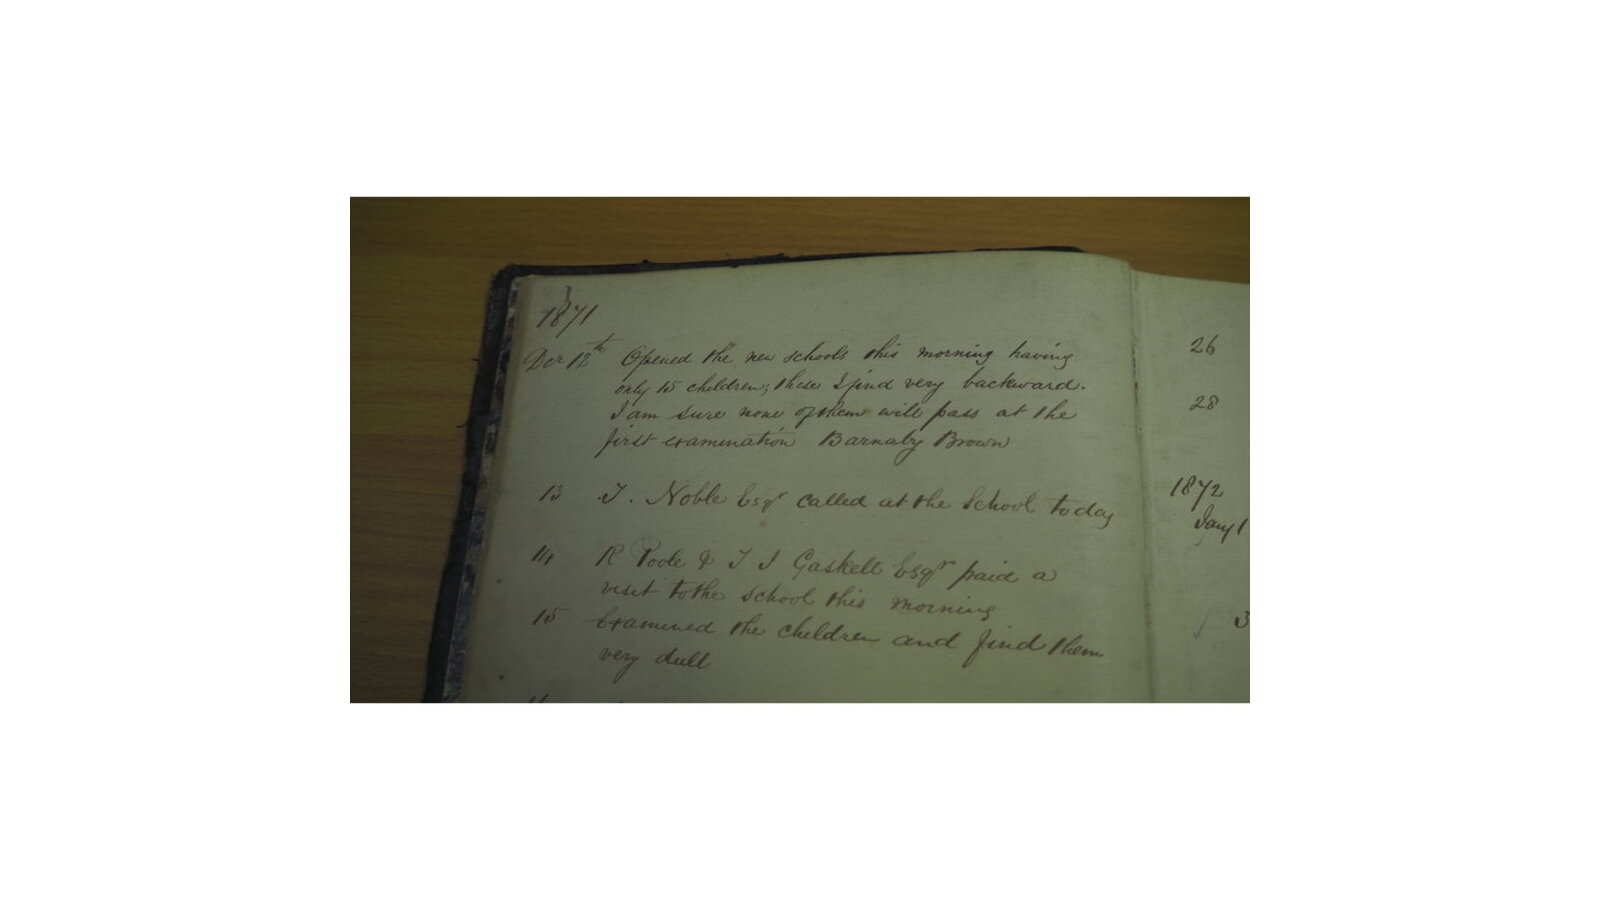 1871
Dec 12th Opened the new schools this morning having
only 15 children; these I find very backward.
I am sure none of them will pass at the
first examination Barnaby Brown
13 T. Noble Esqr called at the School today
14 R Poole & T J Gaskell Esqr paid a
visit to the school this morning
15 Examined the children and find them
very dull
26
28
1872
Jany 1
3